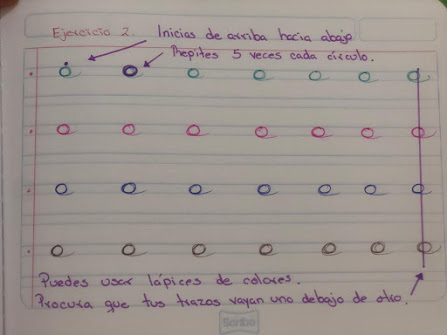 Ejercicio 2. Inicias de arriba hacia abajo
Repites 5 veces cada círculo.
Puedes usar lápices de colores.
Procura que tus trazos vayan uno debajo de otro.
Scribe